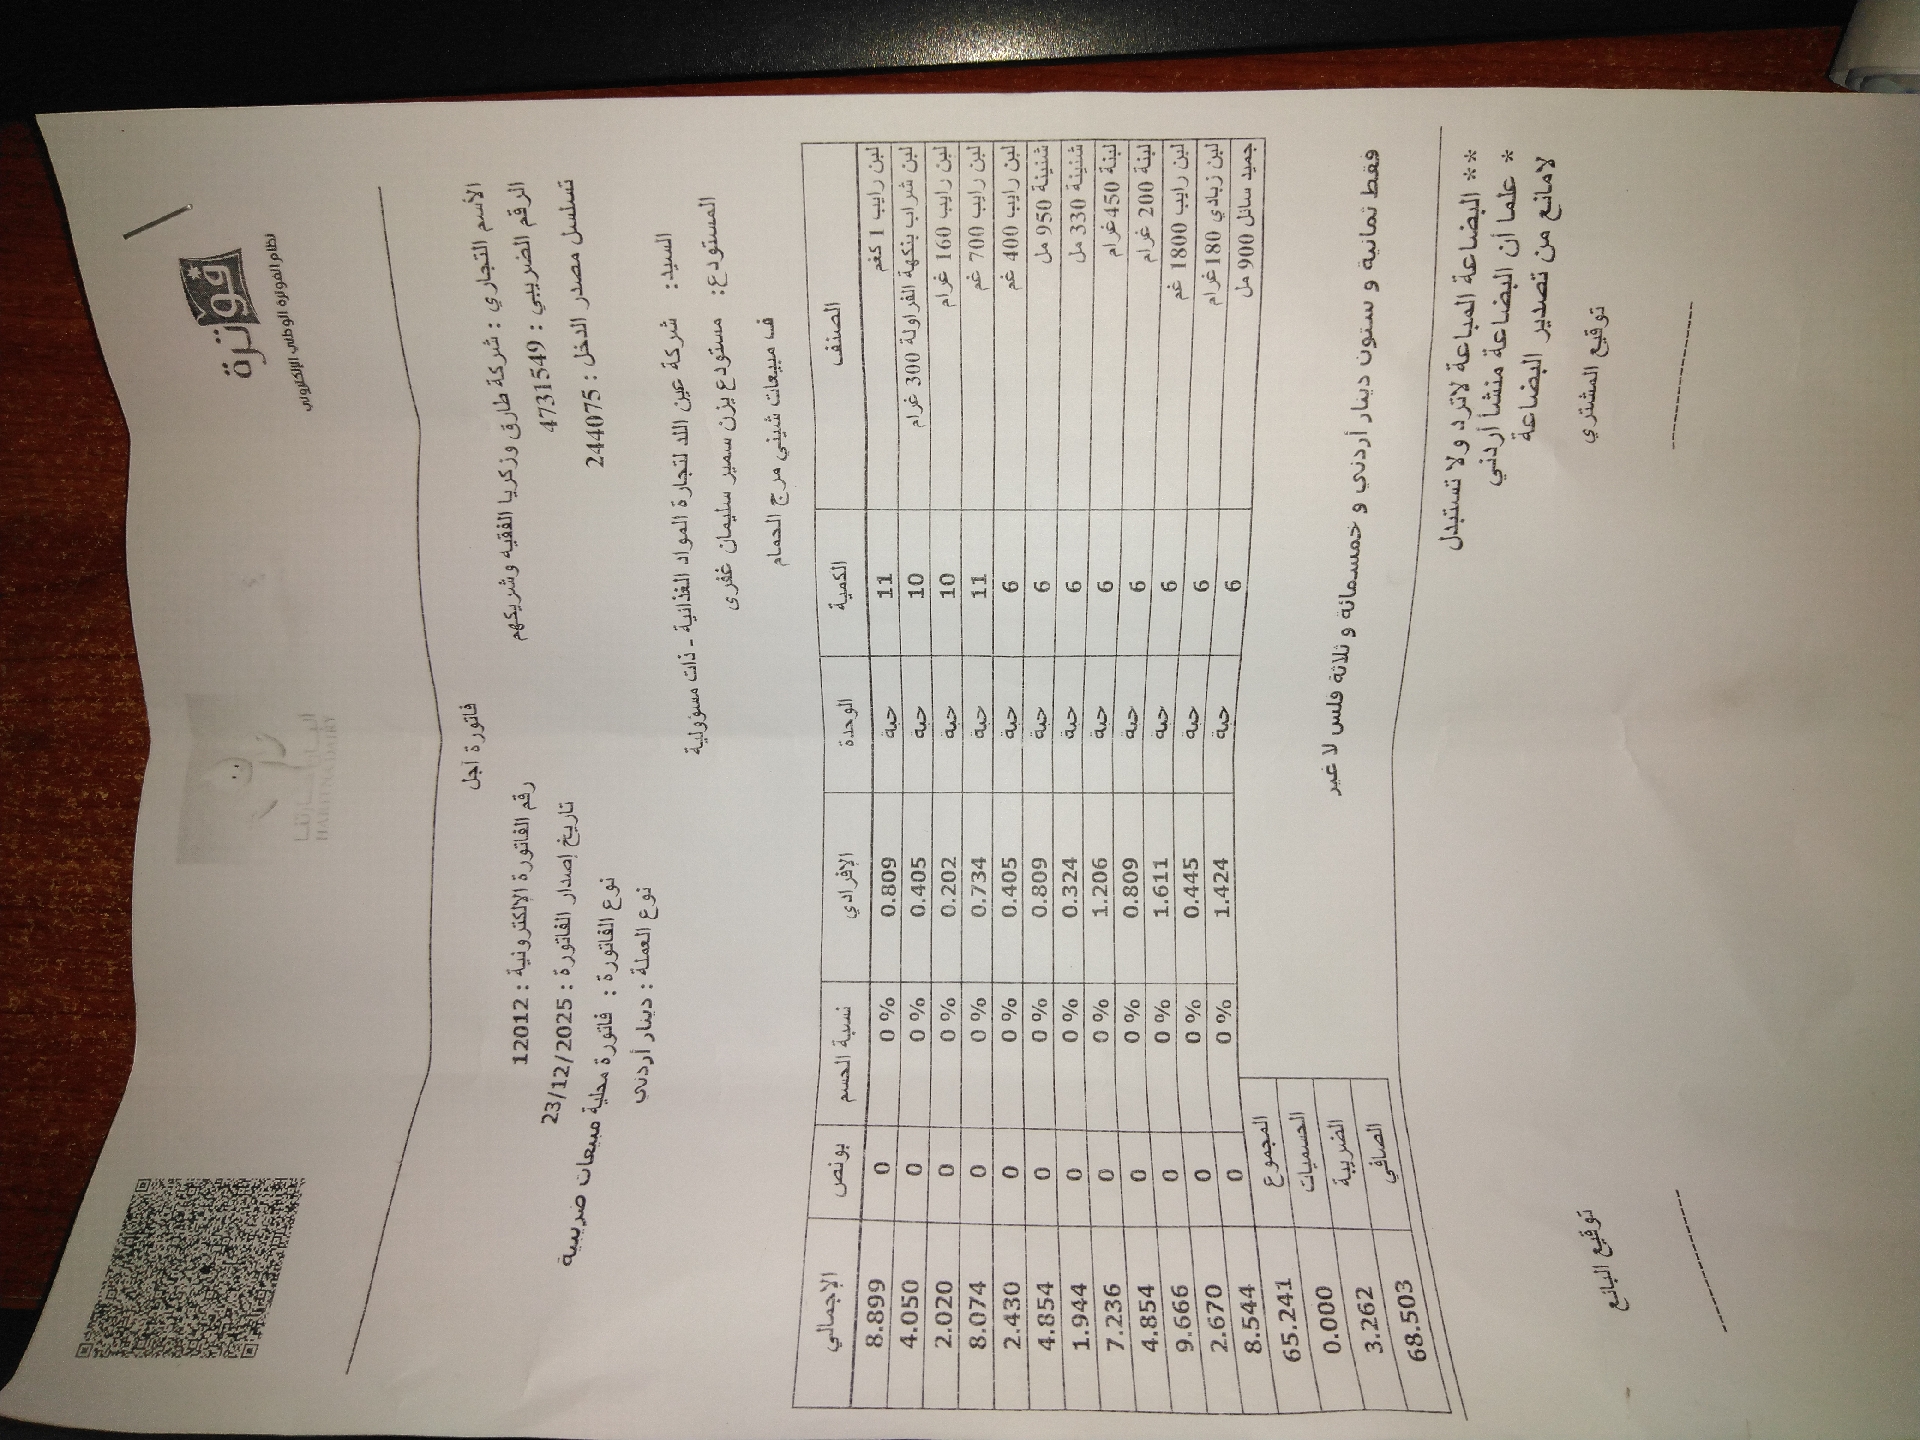 فوترة
نظام الفوترة الوطني الإلكتروني
HARITNA DAIRY
فاتورة آجل
الأسم التجاري : شركة طارق وزكريا الفقيه وشريكهم
رقم الفاتورة الإلكترونية : 12012
الرقم الضريبي : 4731549
تاريخ إصدار الفاتورة : 23/12/2025
تسلسل مصدر الدخل : 244075
نوع الفاتورة : فاتورة محلية مبيعات ضريبية
نوع العملة : دينار أردني
السيد: شركة عين اللد لتجارة المواد الغذائية - ذات مسؤولية
المستودع: مستودع يزن سمير سليمان غفرى
ف مبيعات شيني مرج الحمام
الصنف الكمية الوحدة الإفرادي نسبة الحسم بونص الإجمالي
لبن رايب 1 كغم 11 حبة 0.809 0 % 0 8.899
لبن شراب بنكهة الفراولة 300 غرام 10 حبة 0.405 0 % 0 4.050
لبن رايب 160 غرام 10 حبة 0.202 0 % 0 2.020
لبن رايب 700 غم 11 حبة 0.734 0 % 0 8.074
لبن رايب 400 غم 6 حبة 0.405 0 % 0 2.430
شنينة 950 مل 6 حبة 0.809 0 % 0 4.854
شنينة 330 مل 6 حبة 0.324 0 % 0 1.944
لبنة 450 غرام 6 حبة 1.206 0 % 0 7.236
لبنة 200 غرام 6 حبة 0.809 0 % 0 4.854
لبن رايب 1800 غم 6 حبة 1.611 0 % 0 9.666
لبن زبادي 180 غرام 6 حبة 0.445 0 % 0 2.670
جميد سائل 900 مل 6 حبة 1.424 0 % 0 8.544
المجموع 65.241
الحسميات 0.000
الضريبة 3.262
الصافي 68.503
فقط ثمانية و ستون دينار أردني و خمسمائة و ثلاثة فلس لا غير
** البضاعة المباعة لاترد ولا تستبدل
* علما أن البضاعة منشأ أردني
لامانع من تصدير البضاعة
توقيع المشتري
توقيع البائع